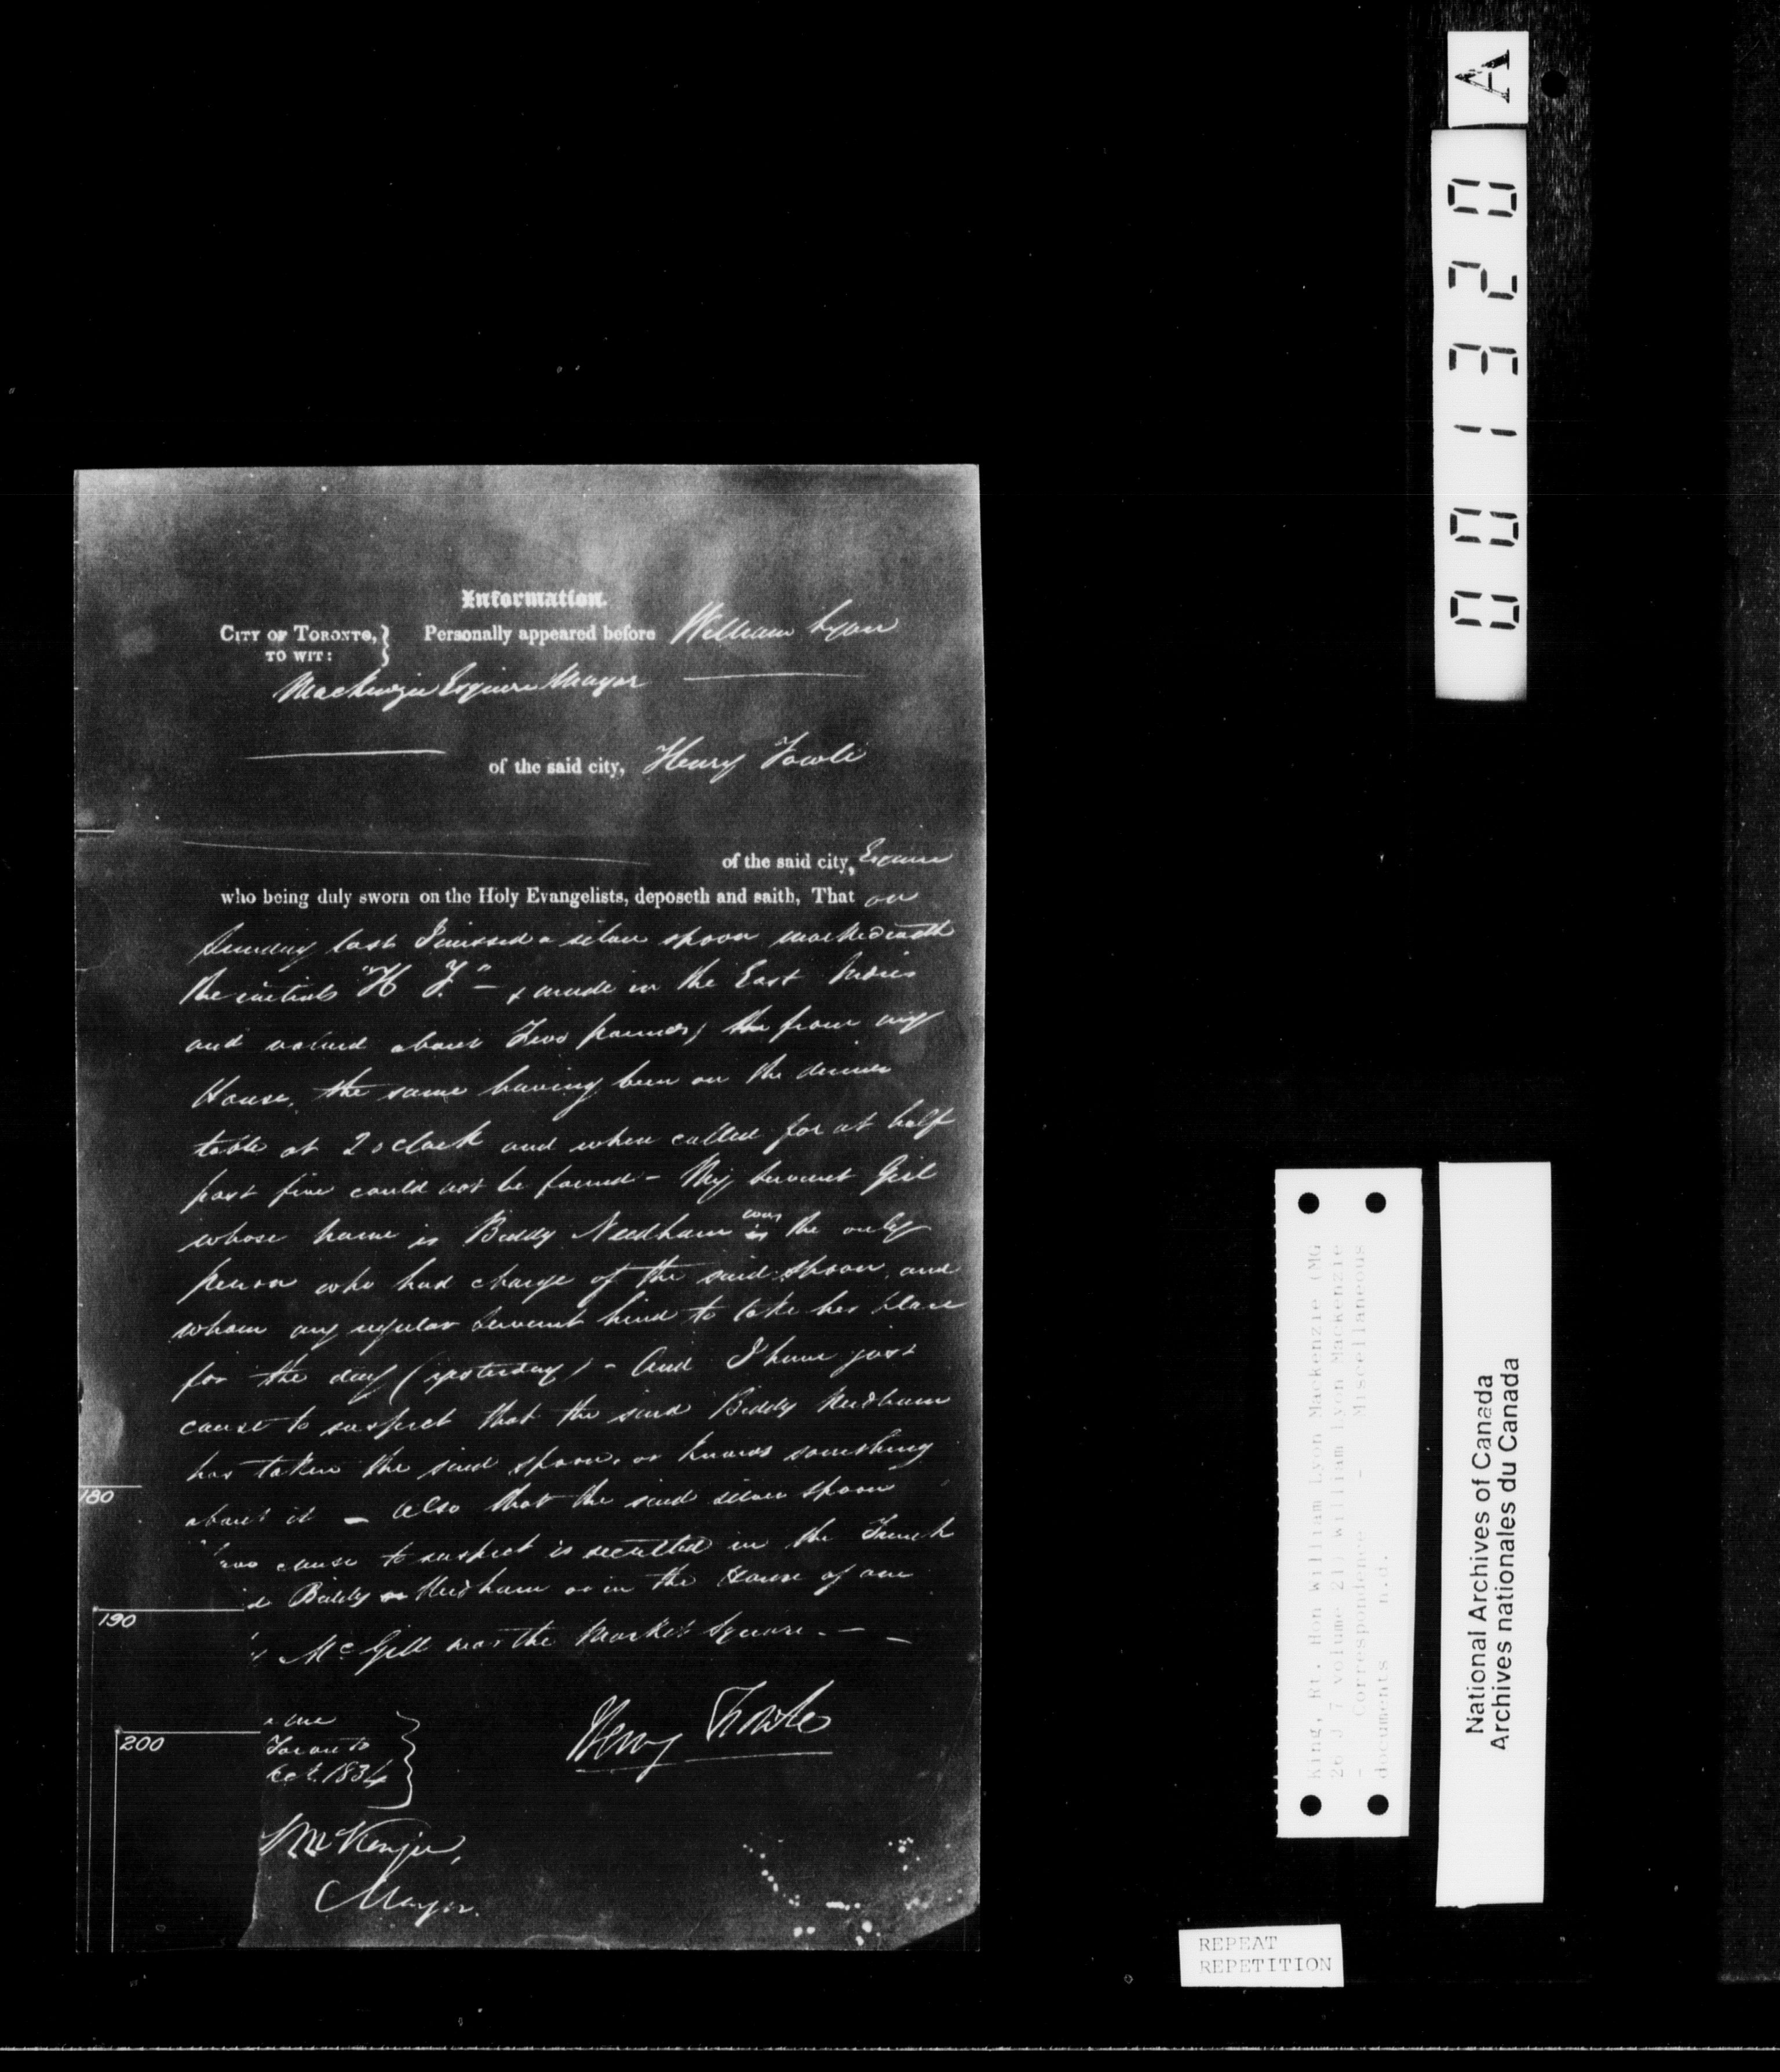 Information.
CITY OF TORONTO, } Personally appeared before William Lyon
TO WIT:
Mackenzie Esquire Mayor
of the said city, Henry Fowle
of the said city, Esquire
who being duly sworn on the Holy Evangelists, deposeth and saith, That on
Sunday last I missed a silver spoon marked with
the initials "H F." — & made in the East Indies
and valued about Two pounds, from my
House, the same having been on the dinner
table at 2 oclock and when called for at half
past five could not be found - My servant Girl
whose name is Biddy Needham was the only
person who had charge of the said spoon, and
whom my regular servant hired to take her place
for the day (yesterday) - And I have just
cause to suspect that the said Biddy Needham
has taken the said spoon, or knows something
about it — also that the said silver spoon
cause to suspect is secreted in the Trunk
Biddy Needham or in the House of one
McGill near the Market Square. —
me
Toronto
Oct. 1834
Henry Fowle
McKenzie,
Mayor.
180
190
200
A
001320
King, Rt. Hon William Lyon Mackenzie (MG
26 J 7 volume 21) William Lyon Mackenzie
- Correspondence - Miscellaneous
documents n.d.
National Archives of Canada
Archives nationales du Canada
REPEAT
REPETITION